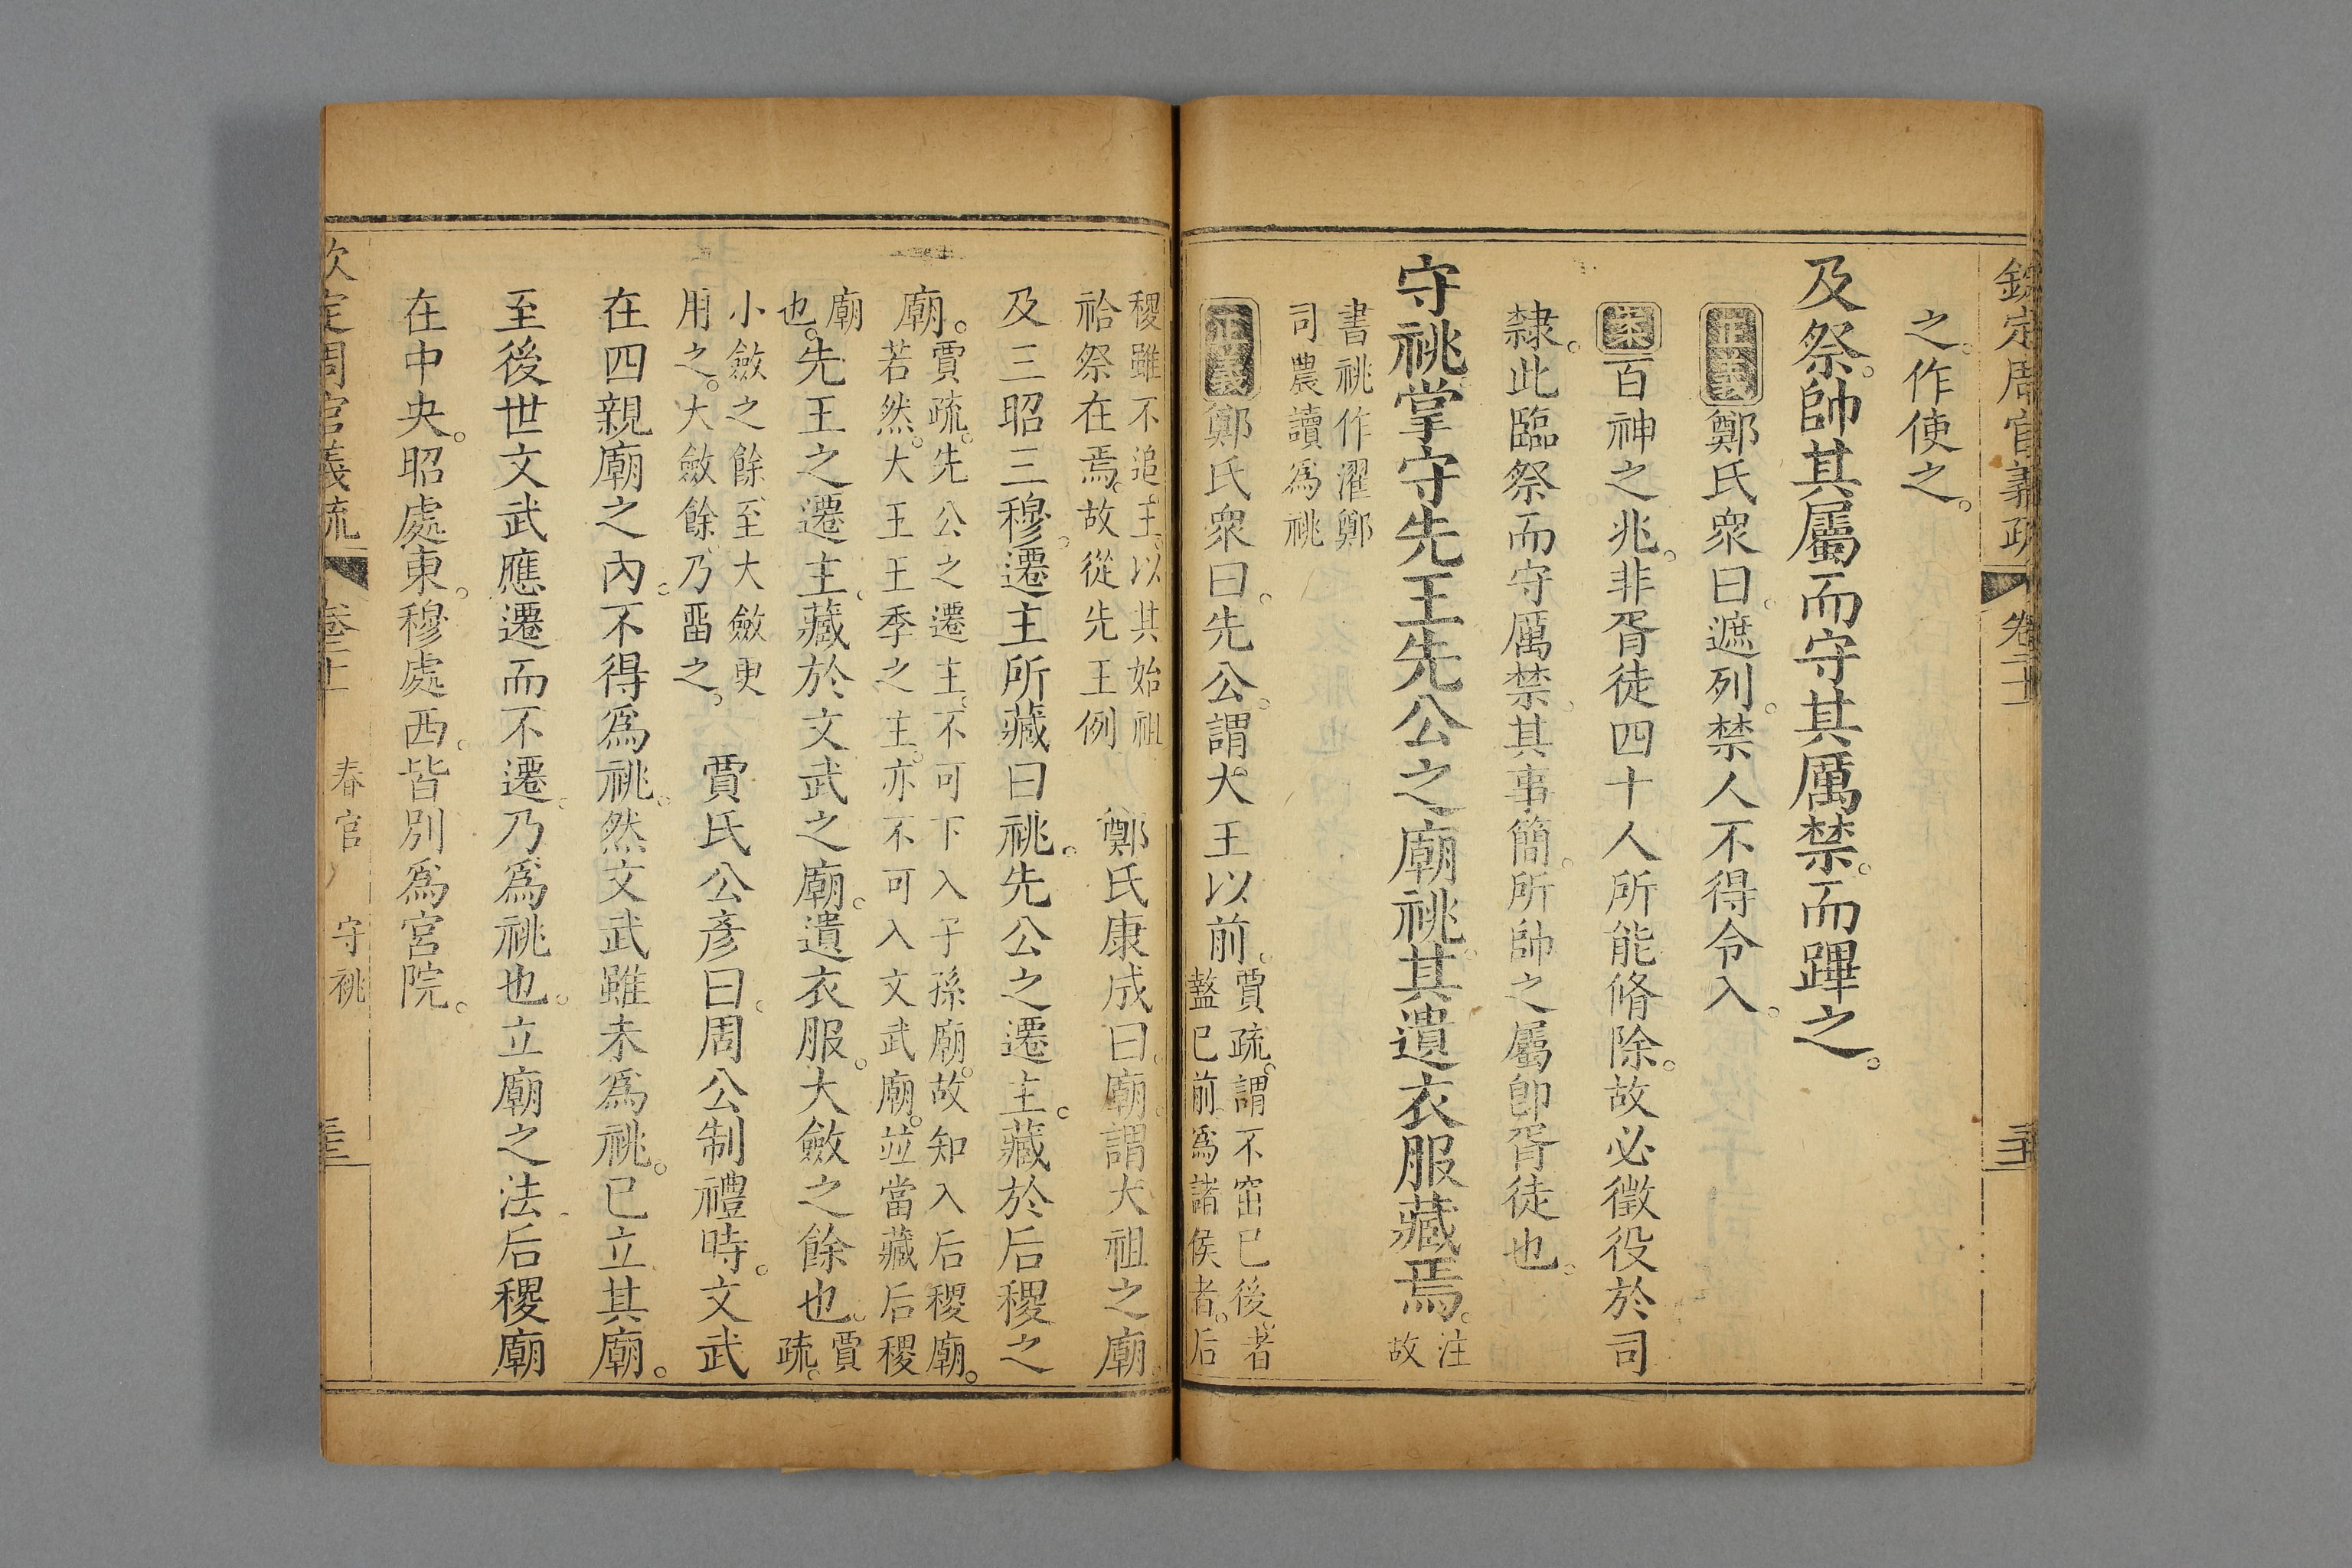 欽定周官義疏 卷二十
之。作使之。
及祭。帥其屬而守其厲禁。而蹕之。
正義鄭氏衆曰。遮列。禁人不得令入。
案百神之兆。非胥徒四十人所能脩除。故必徵役於司
隸。此臨祭而守厲禁。其事簡。所帥之屬卽胥徒也。
守祧掌守先王先公之廟祧。其遺衣服藏焉。注故
書祧作濯鄭
司農讀爲祧
正義鄭氏衆曰。先公。謂大王以前。
賈疏。謂不窋已後。者
盩已前。爲諸侯者。后
稷雖不追王。以其始祖
祫祭在焉。故從先王例
鄭氏康成曰。廟。謂大祖之廟。
及三昭三穆。遷主所藏曰祧。先公之遷主。藏於后稷之
廟。
賈疏。先公之遷主。不可下入子孫廟。故知入后稷廟。
若然。大王王季之主。亦不可入文武廟。竝當藏后稷
廟
也。
先王之遷主。藏於文武之廟。遺衣服。大斂之餘也。
賈
疏。
小斂之餘。至大斂更
用之。大斂餘。乃畱之。
賈氏公彥曰。周公制禮時。文武
在四親廟之內。不得爲祧。然文武雖未爲祧。已立其廟。
至後世文武應遷而不遷。乃爲祧也。立廟之法。后稷廟
在中央。昭處東。穆處西。皆別爲宮院。
欽定周官義疏 卷二十 春官 守祧